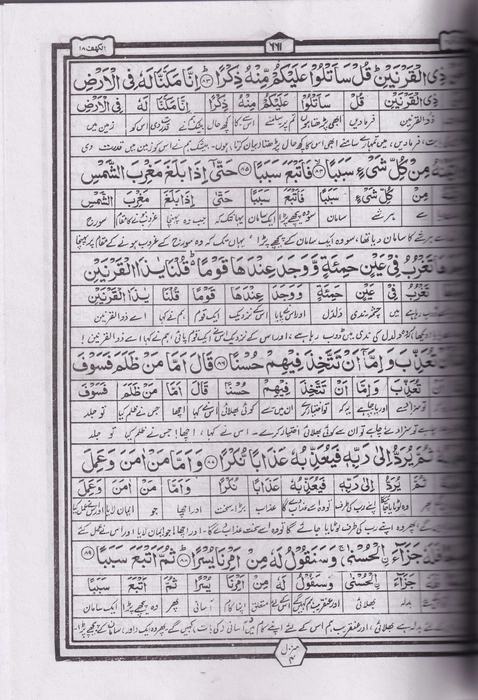 الكهف ١٨
٤٤١
ذِي الْقَرْنَيْنِ ۖ قُلْ سَأَتْلُوا عَلَيْكُمْ مِّنْهُ ذِكْرًا ﴿٨٣﴾ إِنَّا مَكَّنَّا لَهُ فِي الْأَرْضِ
ذِي الْقَرْنَيْنِ قُلْ سَأَتْلُوا عَلَيْكُمْ مِّنْهُ ذِكْرًا إِنَّا مَكَّنَّا لَهُ فِي الْأَرْضِ
ذوالقرنین فرمادیں ابھی پڑھتا ہوں تم پر سامنے اس کا کچھ حال بیشک ہم نے قدرت دی اس کو زمین میں
مِنْ كُلِّ شَيْءٍ سَبَبًا ﴿٨٤﴾ فَأَتْبَعَ سَبَبًا ﴿٨٥﴾ حَتَّىٰ إِذَا بَلَغَ مَغْرِبَ الشَّمْسِ
مِنْ كُلِّ شَيْءٍ سَبَبًا فَأَتْبَعَ سَبَبًا حَتَّىٰ إِذَا بَلَغَ مَغْرِبَ الشَّمْسِ
سے ہر شے سامان سو وہ پیچھے پڑا ایک سامان یہانتک کہ جب وہ پہنچا غروب ہونے کا مقام سورج
ہر شے کا سامان دیا تھا، سو وہ ایک سامان کے پیچھے پڑا، یہاں تک کہ وہ سورج کے غروب ہونے کے مقام پر پہنچا
تَغْرُبُ فِي عَيْنٍ حَمِئَةٍ وَّوَجَدَ عِنْدَهَا قَوْمًا ۗ قُلْنَا يٰذَا الْقَرْنَيْنِ
تَغْرُبُ فِي عَيْنٍ حَمِئَةٍ وَوَجَدَ عِنْدَهَا قَوْمًا قُلْنَا يٰذَا الْقَرْنَيْنِ
میں چشمہ ندی دلدل اور اس نے پایا اس کے نزدیک ایک قوم ہم نے کہا اے ذوالقرنین
دلدل کی ندی میں ڈوب رہا ہے، اور اس کے نزدیک اس نے ایک قوم پائی، ہم نے کہا اے ذوالقرنین!
تُعَذِّبَ وَإِمَّا أَنْ تَتَّخِذَ فِيهِمْ حُسْنًا ﴿٨٦﴾ قَالَ أَمَّا مَنْ ظَلَمَ فَسَوْفَ
تُعَذِّبَ وَإِمَّا أَنْ تَتَّخِذَ فِيهِمْ حُسْنًا قَالَ أَمَّا مَنْ ظَلَمَ فَسَوْفَ
تو سزا دے اور یا چاہے یہ کہ تو اختیار کرے ان میں سے کوئی بھلائی اس نے کہا اچھا جس نے ظلم کیا تو جلد
تو سزا دے چاہے تو ان سے کوئی بھلائی اختیار کرے۔ اس نے کہا، اچھا! جس نے ظلم کیا تو جلد
ثُمَّ يُرَدُّ إِلَىٰ رَبِّهِ فَيُعَذِّبُهُ عَذَابًا نُّكْرًا ﴿٨٧﴾ وَأَمَّا مَنْ اٰمَنَ وَعَمِلَ
ثُمَّ يُرَدُّ إِلَىٰ رَبِّهِ فَيُعَذِّبُهُ عَذَابًا نُّكْرًا وَأَمَّا مَنْ اٰمَنَ وَعَمِلَ
پھر وہ لوٹایا جائیگا اپنے رب کی طرف تو وہ اسے عذاب دے گا عذاب بڑا سخت اور اچھا جو ایمان لایا اور اس نے عمل کیا
پھر وہ اپنے رب کی طرف لوٹایا جائے گا تو وہ اسے سخت عذاب دے گا۔ اور اچھا جو ایمان لایا اور اس نے عمل کئے
جَزَاءً الْحُسْنَىٰ ۖ وَسَنَقُولُ لَهُ مِنْ أَمْرِنَا يُسْرًا ﴿٨٨﴾ ثُمَّ أَتْبَعَ سَبَبًا ﴿٨٩﴾
جَزَاءً الْحُسْنَىٰ وَسَنَقُولُ لَهُ مِنْ أَمْرِنَا يُسْرًا ثُمَّ أَتْبَعَ سَبَبًا
بدلہ بھلائی اور عنقریب ہم کہیں گے اس کے لئے متعلق اپنا کام آسانی پھر وہ پیچھے پڑا ایک سامان
بدلہ ہے بھلائی، اور عنقریب ہم اس کے لئے اپنے کام میں آسانی کی بات کہیں گے پھر وہ ایک اور سامان کے پیچھے پڑا
منزل
٤